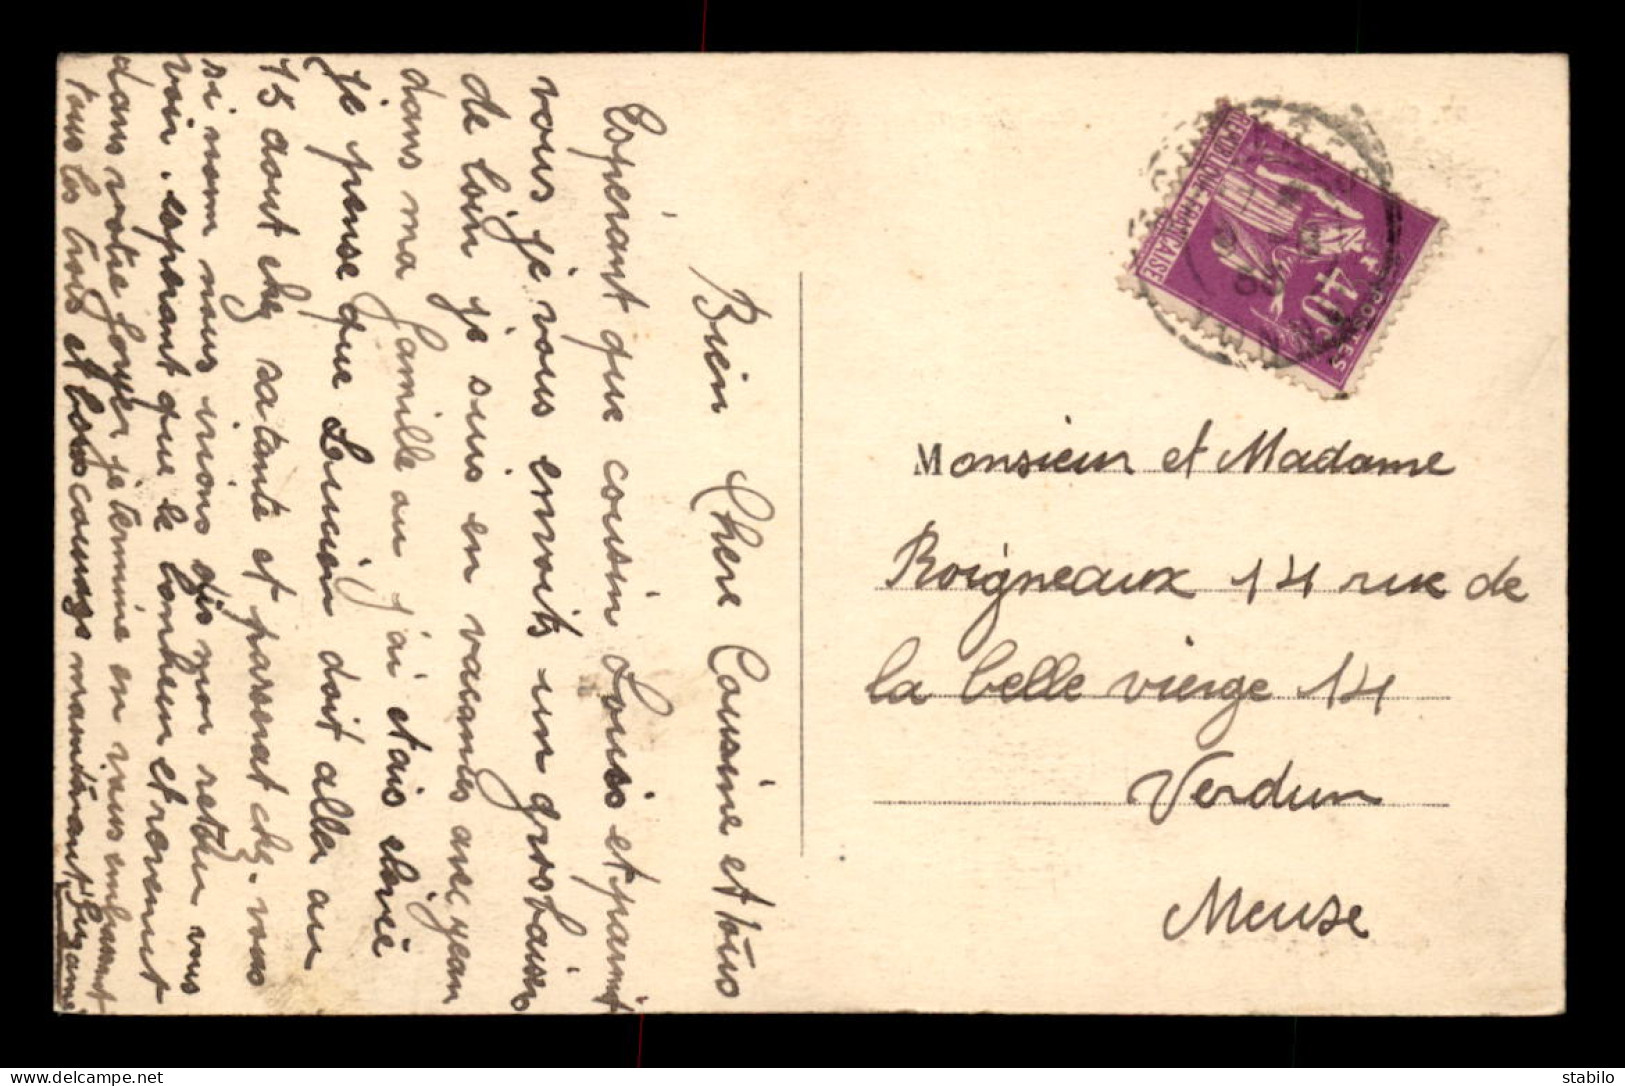 Bien Chere Cousine et tous
Espérant que cousin Louis et parmi
vous je vous envoits un gros baiser
de loin je suis en vacances avec jean
dans ma famille au j'ai etais élevié
je pense que Lucien doit aller au
15 aout chez sa tante et passerat chez vous
si nom nous irions dis mon retour vous
voir. esperant que le bonheur et revenut
dans votre foyer je termine en vous embrassant
tous les trois et bons courage maintenant Suzanne
REPUBLIQUE FRANÇAISE
POSTES
40c
Monsieur et Madame
Roigneaux 14 rue de
la belle vierge 14
Verdun
Meuse
stabilo